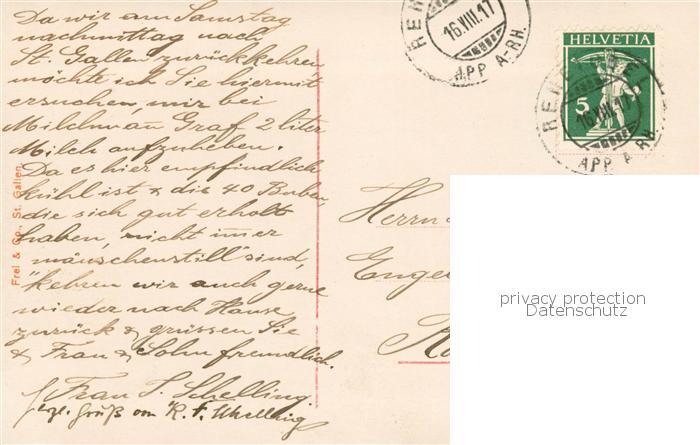 Da wir am Samstag
nachmittag nach
St. Gallen zurückkehren
möchte ich Sie hiermit
ersuchen, mir bei
Milchmann Graf 2 liter
Milch aufzuheben.
Da es hier empfindlich
kühl ist & die 40 Buben,
die sich gut erholt
haben, nicht immer
"mäuschenstill" sind,
kehren wir auch gerne
wieder nach Hause
zurück & grüssen Sie
& Frau & Sohn freundlich.
Frau S. Schelling
herzl. Gruß von
Frei & Co., St. Gallen
REHETOBEL
16.VIII.17
APP A. RH.
HELVETIA
5
REHETOBEL
16.VIII.17
APP A. RH.
Herrn
privacy protection
Datenschutz